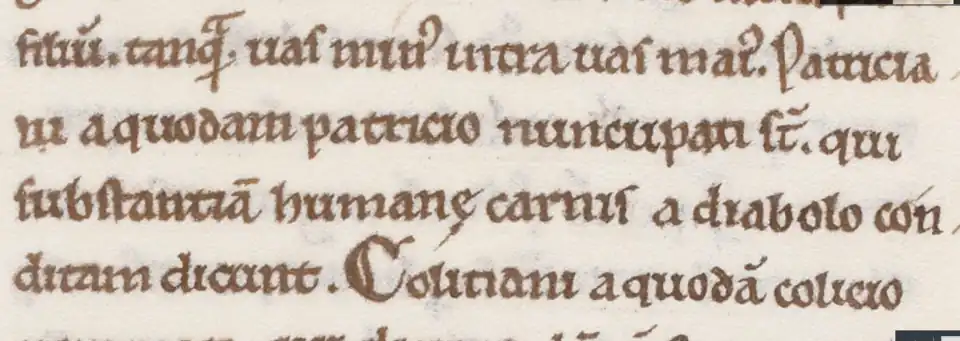 filiū. tanqͣ. uas minꝰ intra uas maiꝰ. Patricia
ni a quodam patricio nuncupati st̄. qui
substantiā humanę carnis a diabolo con
ditam dicunt. Colitiani a quodā colicio